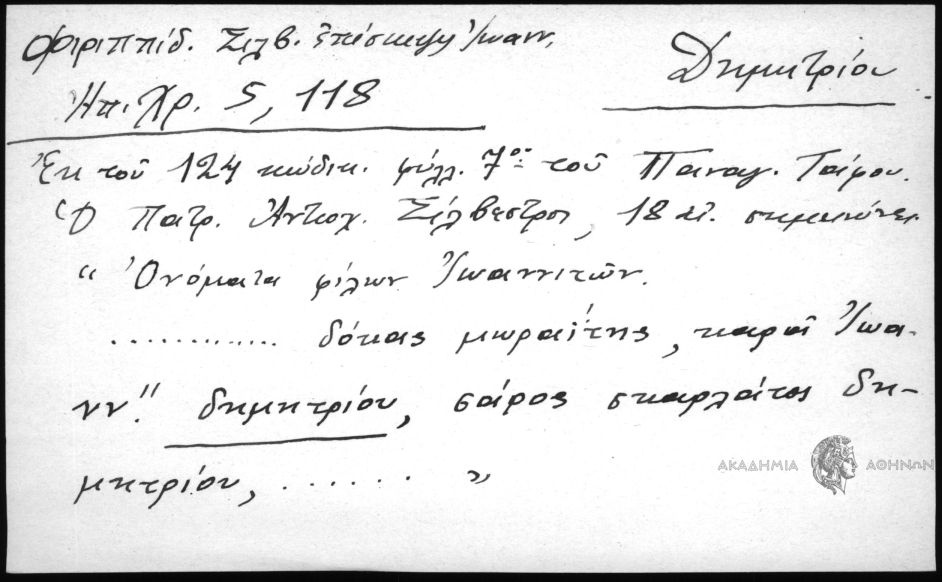 Φιριππίδ. Σιλβ. ἐπίσκεψ Ἰωανν.
Δημητρίου
Ἠπ. Χρ. 5, 118
Ἐκ τοῦ 124 κώδικ. φύλλ. 7ον τοῦ Παναγ. Τάφου.
Ὁ Πατρ. Ἀντιοχ. Σίλβεστρος, 18 αἰ. σημειώνει
" Ὀνόματα φίλων Ἰωαννιτῶν.
............ δόκας μωραΐτης, καρᾶ Ἰωά-
νν!! δημητρίου, σάρος σκαρλάτος δη-
μητρίου, ...... "
ΑΚΑΔΗΜΙΑ ΑΘΗΝΩΝ